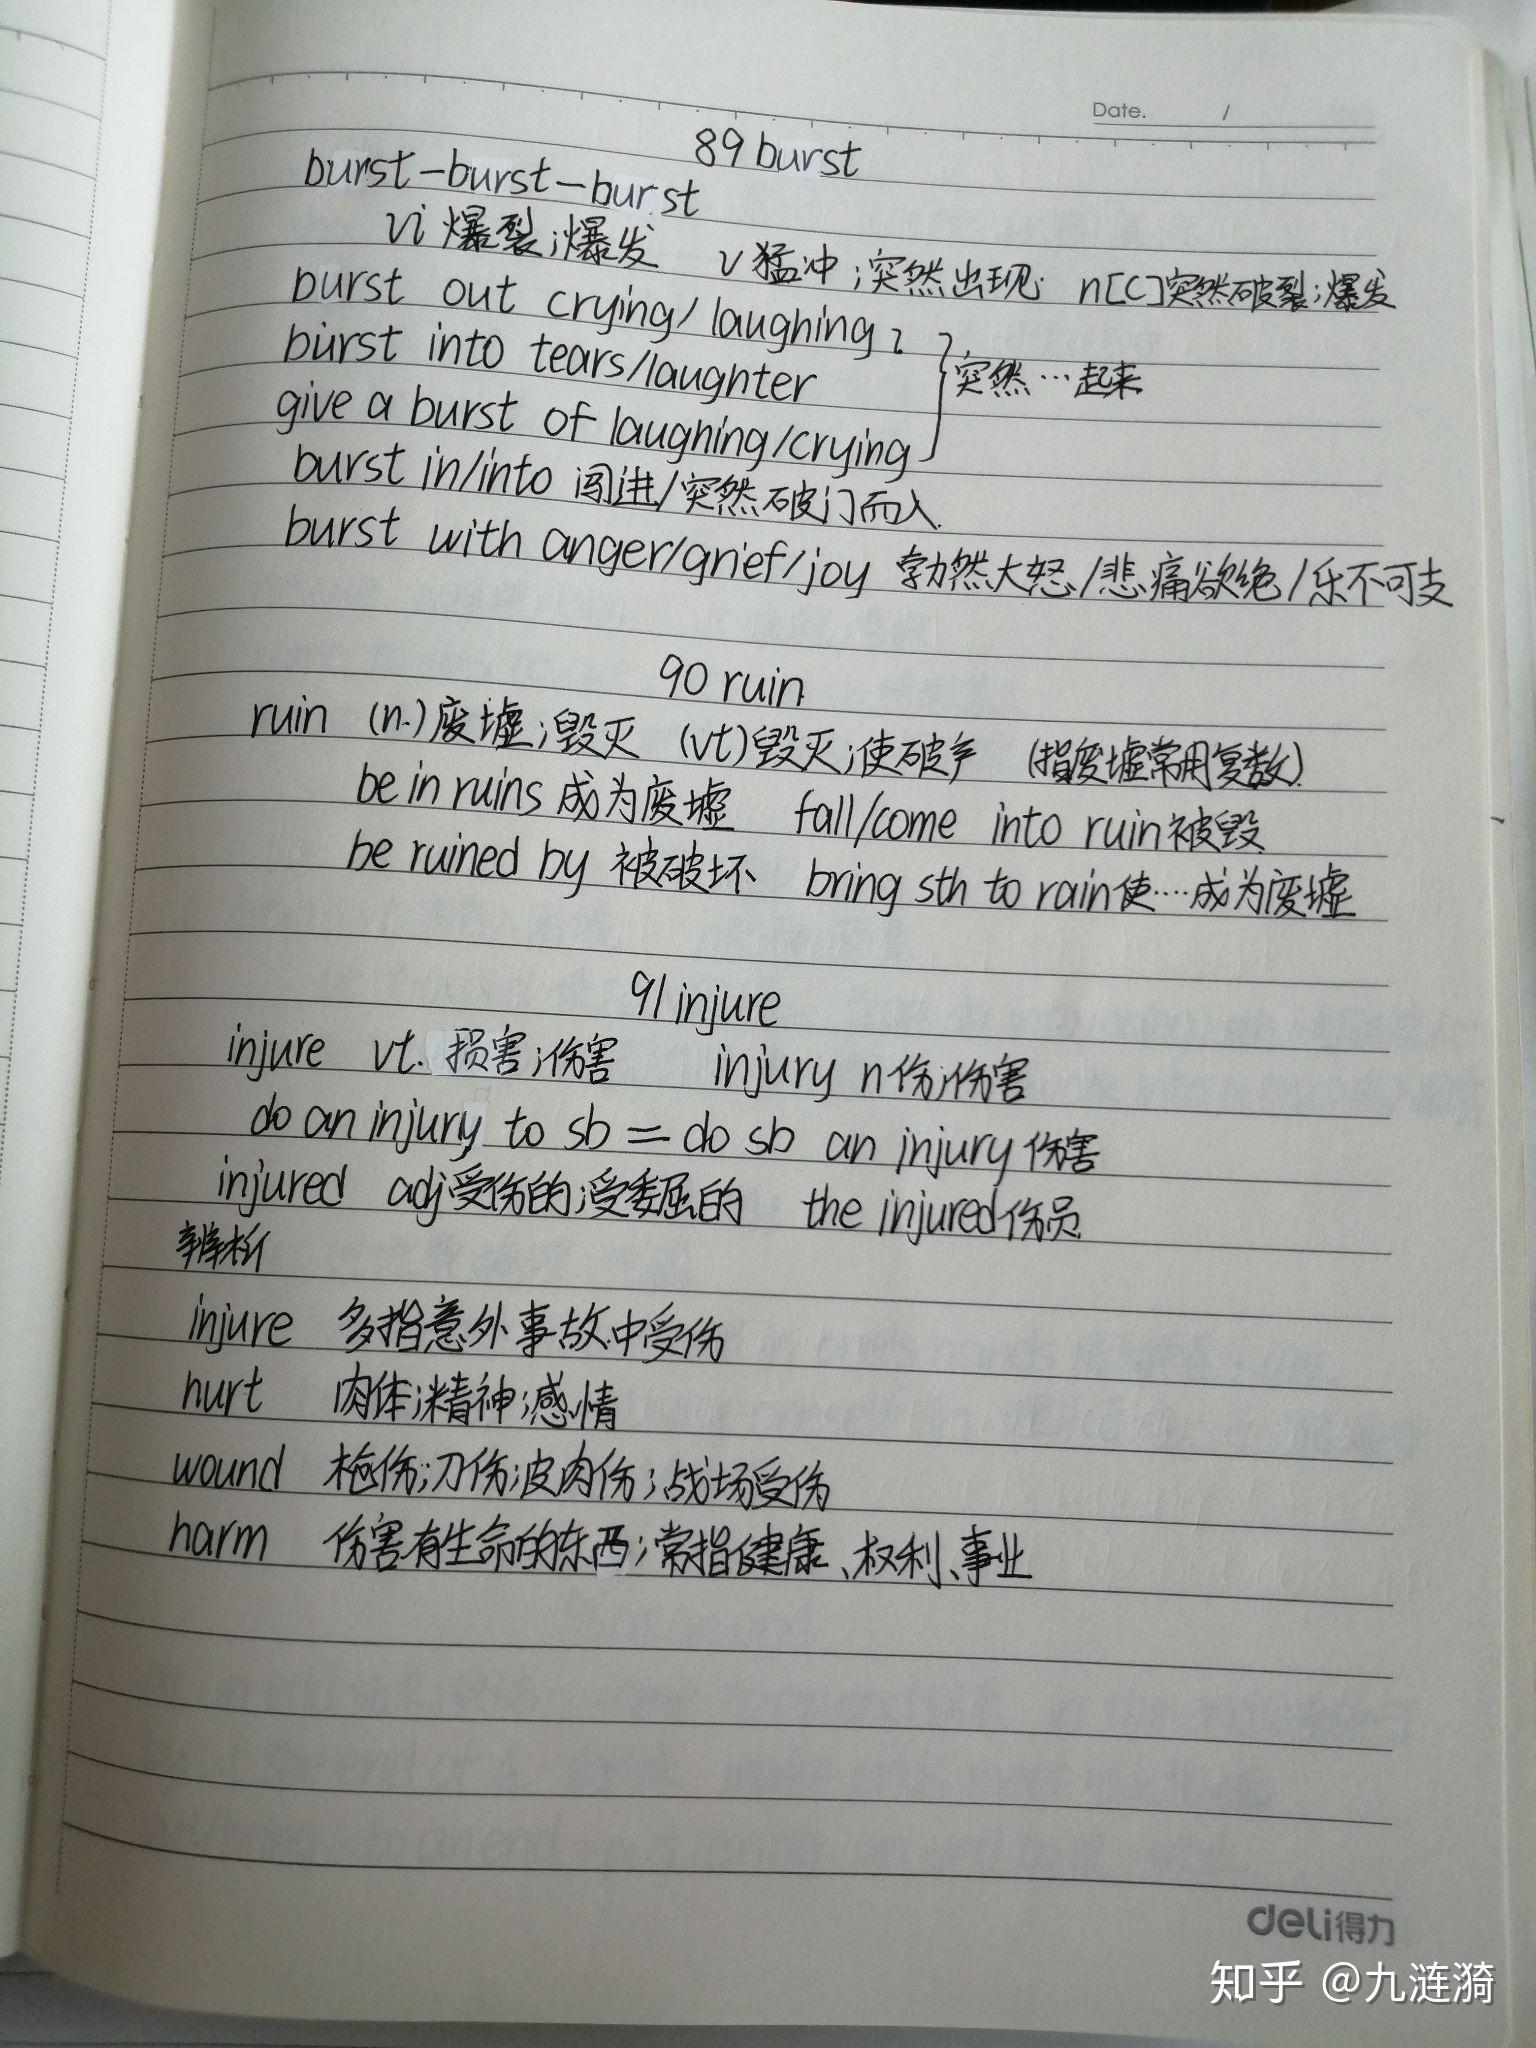 Date. /
89 burst
burst-burst-burst
vi 爆裂;爆发 v 猛冲;突然出现 n[C]突然破裂;爆发
burst out crying/laughing
burst into tears/laughter
突然…起来
give a burst of laughing/crying
burst in/into 闯进/突然破门而入
burst with anger/grief/joy 勃然大怒/悲痛欲绝/乐不可支
90 ruin
ruin (n.)废墟;毁灭 (vt)毁灭;使破产 (指废墟常用复数)
be in ruins 成为废墟 fall/come into ruin 被毁
be ruined by 被破坏 bring sth to rain 使....成为废墟
91 injure
injure vt. 损害;伤害 injury n 伤;伤害
do an injury to sb = do sb an injury 伤害
injured adj 受伤的;受委屈的 the injured 伤员
辨析
injure 多指意外事故中受伤
hurt 肉体;精神;感情
wound 枪伤;刀伤;皮肉伤;战场受伤
harm 伤害有生命的东西;常指健康、权利、事业
deli得力
知乎 @九涟漪